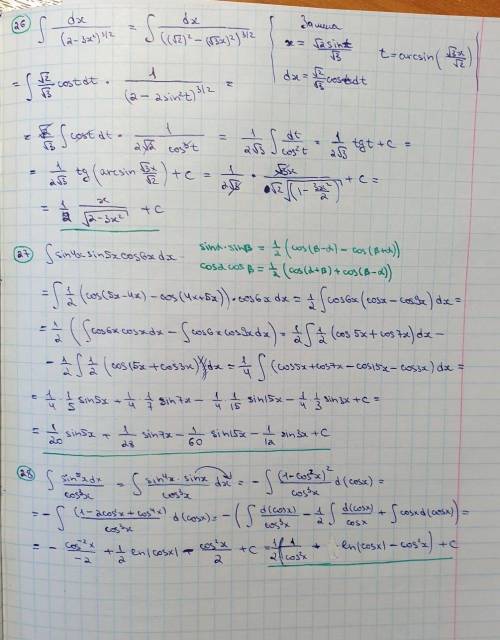 26) ∫ dx/(2-3x²)^(3/2) = ∫ dx/((√2)² - (√3x)²)^(3/2)
Замена
x = √2 sint/√3
t = arcsin(√3x/√2)
dx = √2/√3 cost dt
= ∫ √2/√3 cost dt · 1/(2-2sin²t)^(3/2) =
= √2/√3 ∫ cost dt · 1/(2√2 cos³t) = 1/(2√3) ∫ dt/cos²t = 1/(2√3) tgt + C =
= 1/(2√3) tg(arcsin √3x/√2) + C = 1/(2√3) · √3x/(√2 √(1 - 3x²/2)) + C =
= 1/2 x/√(2-3x²) + C
27) ∫ sin4x sin5x cos6x dx
sinα·sinβ = 1/2 (cos(β-α) - cos(β+α))
cosα cosβ = 1/2 (cos(α+β) + cos(β-α))
= ∫ 1/2 (cos(5x-4x) - cos(4x+5x)) · cos6x dx = 1/2 ∫ cos6x (cosx - cos9x) dx =
= 1/2 (∫ cos6x cosx dx - ∫ cos6x cos9x dx) = 1/2 ∫ 1/2 (cos5x + cos7x) dx -
- 1/2 ∫ 1/2 (cos15x + cos3x) dx = 1/4 ∫ (cos5x + cos7x - cos15x - cos3x) dx =
= 1/4 · 1/5 sin5x + 1/4 · 1/7 sin7x - 1/4 · 1/15 sin15x - 1/4 · 1/3 sin3x + C =
= 1/20 sin5x + 1/28 sin7x - 1/60 sin15x - 1/12 sin3x + C
28) ∫ sin⁵x dx/cos³x = ∫ sin⁴x · sinx/cos³x dx = - ∫ (1-cos²x)²/cos³x d(cosx) =
= - ∫ (1-2cos²x+cos⁴x)/cos³x d(cosx) = - (∫ d(cosx)/cos³x - 1/2 ∫ d(cosx)/cosx + ∫ cosx d(cosx)) =
= - cos⁻²x/-2 + 1/2 ln|cosx| - cos²x/2 + C = 1/2 (1/cos²x + ln|cosx| - cos²x) + C